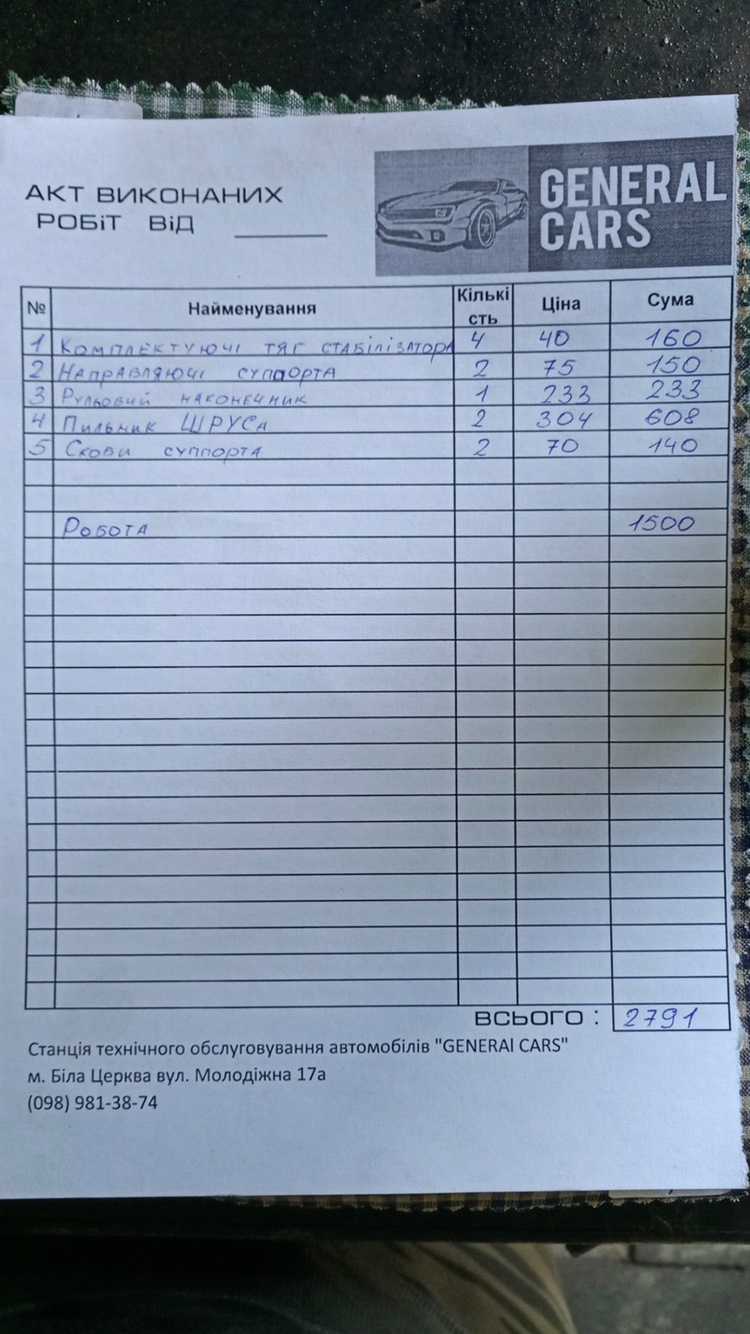 АКТ ВИКОНАНИХ
РОБІТ ВІД
GENERAL
CARS
№ Найменування Кількі сть Ціна Сума
1 Комплектуючі тяг стабілізатора 4 40 160
2 Направляючі суппорта 2 75 150
3 Рульовий наконечник 1 233 233
4 Пильник ШРУСа 2 304 608
5 Скоби суппорта 2 70 140
Робота 1500
ВСЬОГО : 2791
Станція технічного обслуговування автомобілів "GENERAl CARS"
м. Біла Церква вул. Молодіжна 17а
(098) 981-38-74